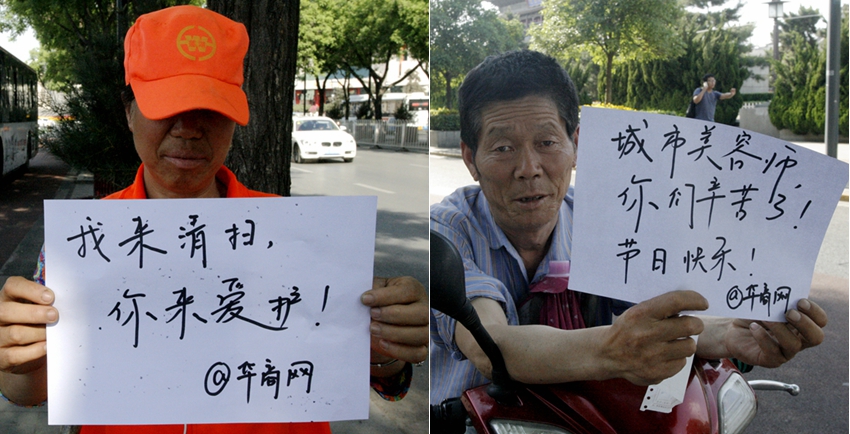 我来清扫,
你来爱护!
@华商网
城市美容师,
你们辛苦了!
节日快乐!
@华商网